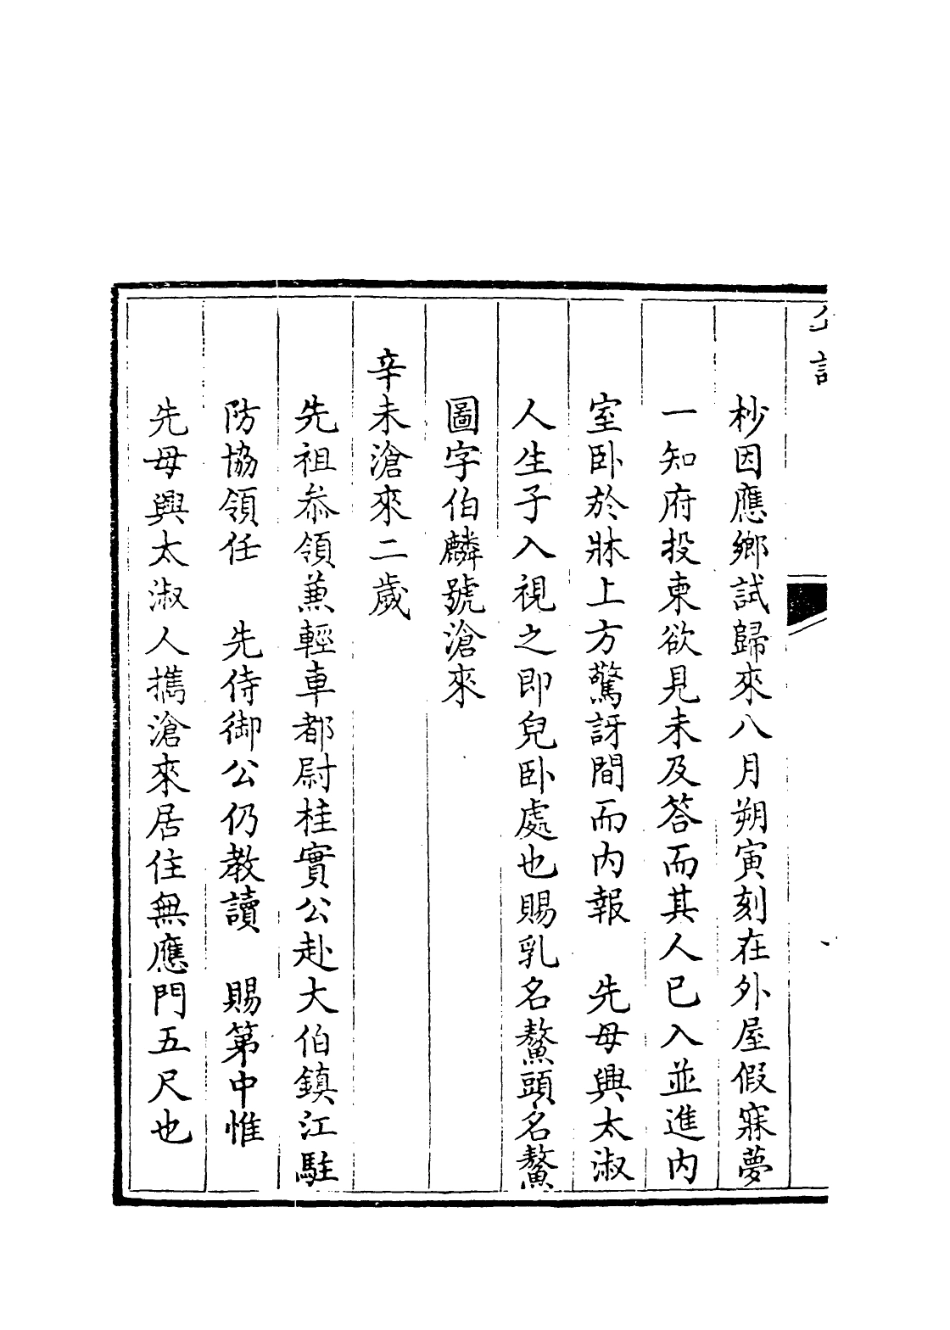 杪因應鄉試歸來八月朔寅刻在外屋假寐夢
一知府投柬欲見未及答而其人已入並進内
室卧於牀上方驚訝間而内報　先母興太淑
人生子入視之即兒卧處也賜乳名鰲頭名鰲
圖字伯麟號滄來
辛未滄來二歲
先祖叅領兼輕車都尉桂實公赴大伯鎮江駐
防協領任　先侍御公仍教讀　賜第中惟
先母興太淑人攜滄來居住無應門五尺也